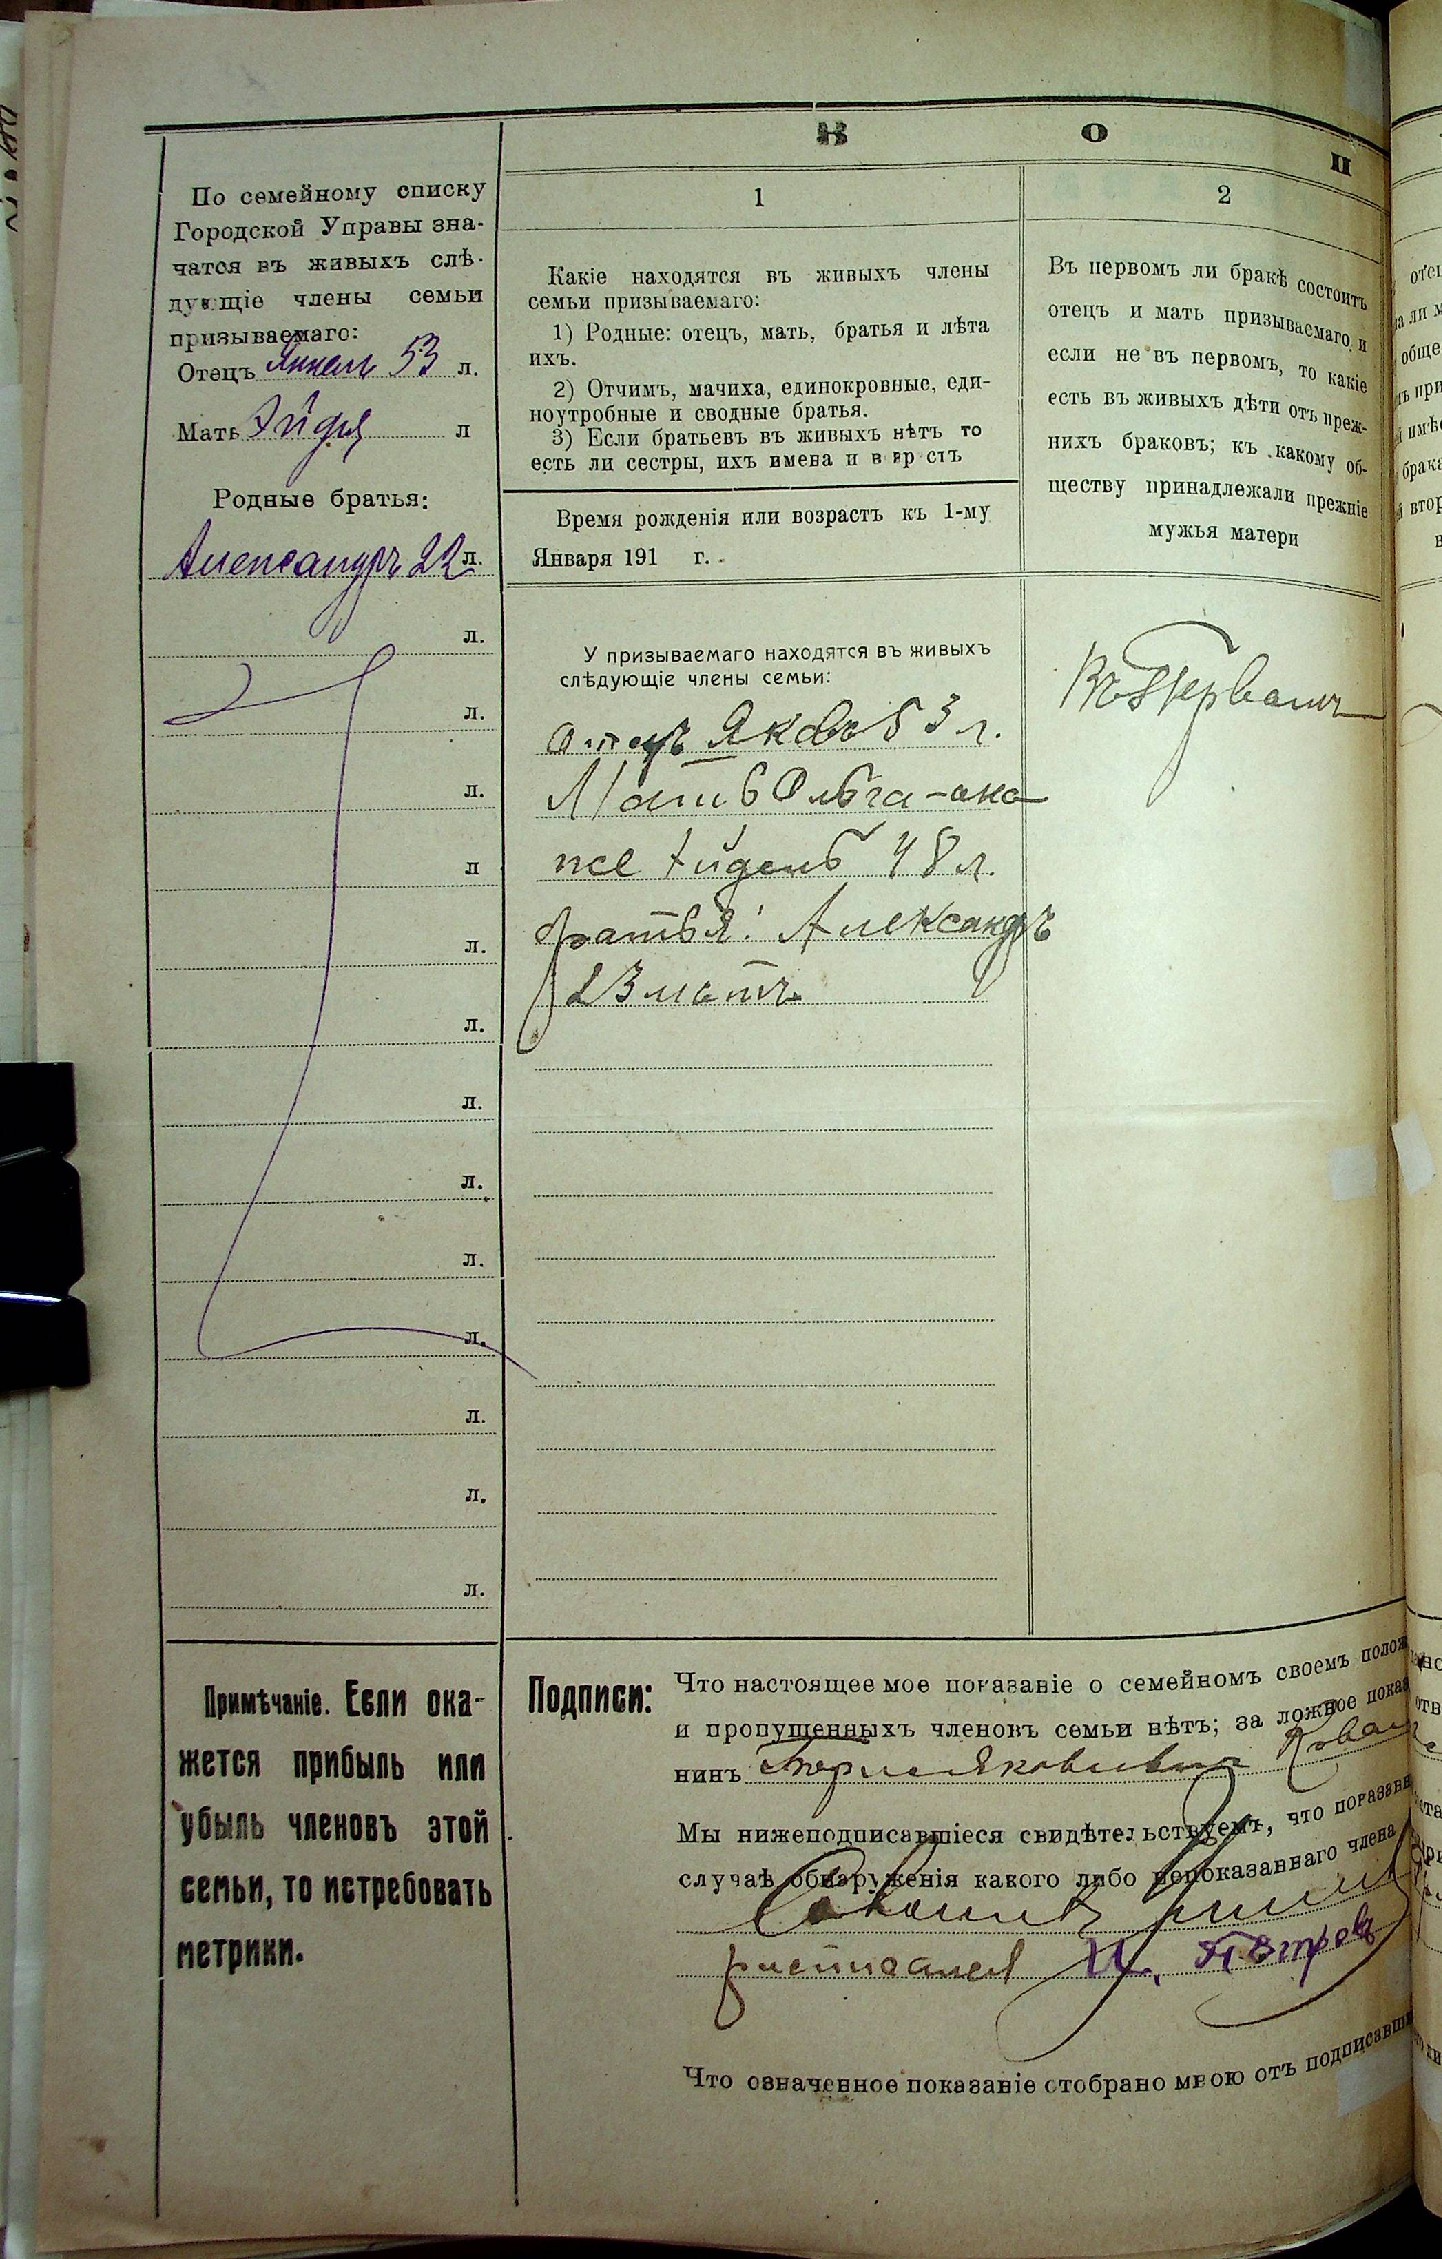 В О П
По семейному списку
Городской Управы зна-
чатся въ живыхъ слѣ-
дующіе члены семьи
призываемаго:
Отецъ Янкель 53 л.
Мать Эйдля л
Родные братья:
Александръ 22 л.
л.
л.
л.
л
л.
л.
л.
л.
л.
л.
л.
л.
л.
Примѣчаніе. Если ока-
жется прибыль или
убыль членовъ этой
семьи, то истребовать
метрики.
1
Какіе находятся въ живыхъ члены
семьи призываемаго:
1) Родные: отецъ, мать, братья и лѣта
ихъ.
2) Отчимъ, мачиха, единокровные, еди-
ноутробные и сводные братья.
3) Если братьевъ въ живыхъ нѣтъ то
есть ли сестры, ихъ имена и в зр стъ
Время рожденія или возрастъ къ 1-му
Января 191 г.
У призываемаго находятся въ живыхъ
слѣдующіе члены семьи:
отецъ Яковъ 53 л.
Мать Ольга - она
же Эйдель 48 л.
братья: Александръ
23 лѣтъ
2
Въ первомъ ли бракѣ состоитъ
отецъ и мать призываемаго и
если не въ первомъ, то какіе
есть въ живыхъ дѣти отъ преж-
нихъ браковъ; къ какому об-
ществу принадлежали прежніе
мужья матери
Въ первомъ
Подписи:
Что настоящее мое показаніе о семейномъ своемъ полож
и пропущенныхъ членовъ семьи нѣтъ; за ложное показ
нинъ Яковлевичъ
Мы нижеподписавшіеся свидѣтельствуемъ, что показані
случаѣ обнаруженія какого либо непоказаннаго члена
расписался И. Петровъ
Что означенное показаніе отобрано мною отъ подписавши